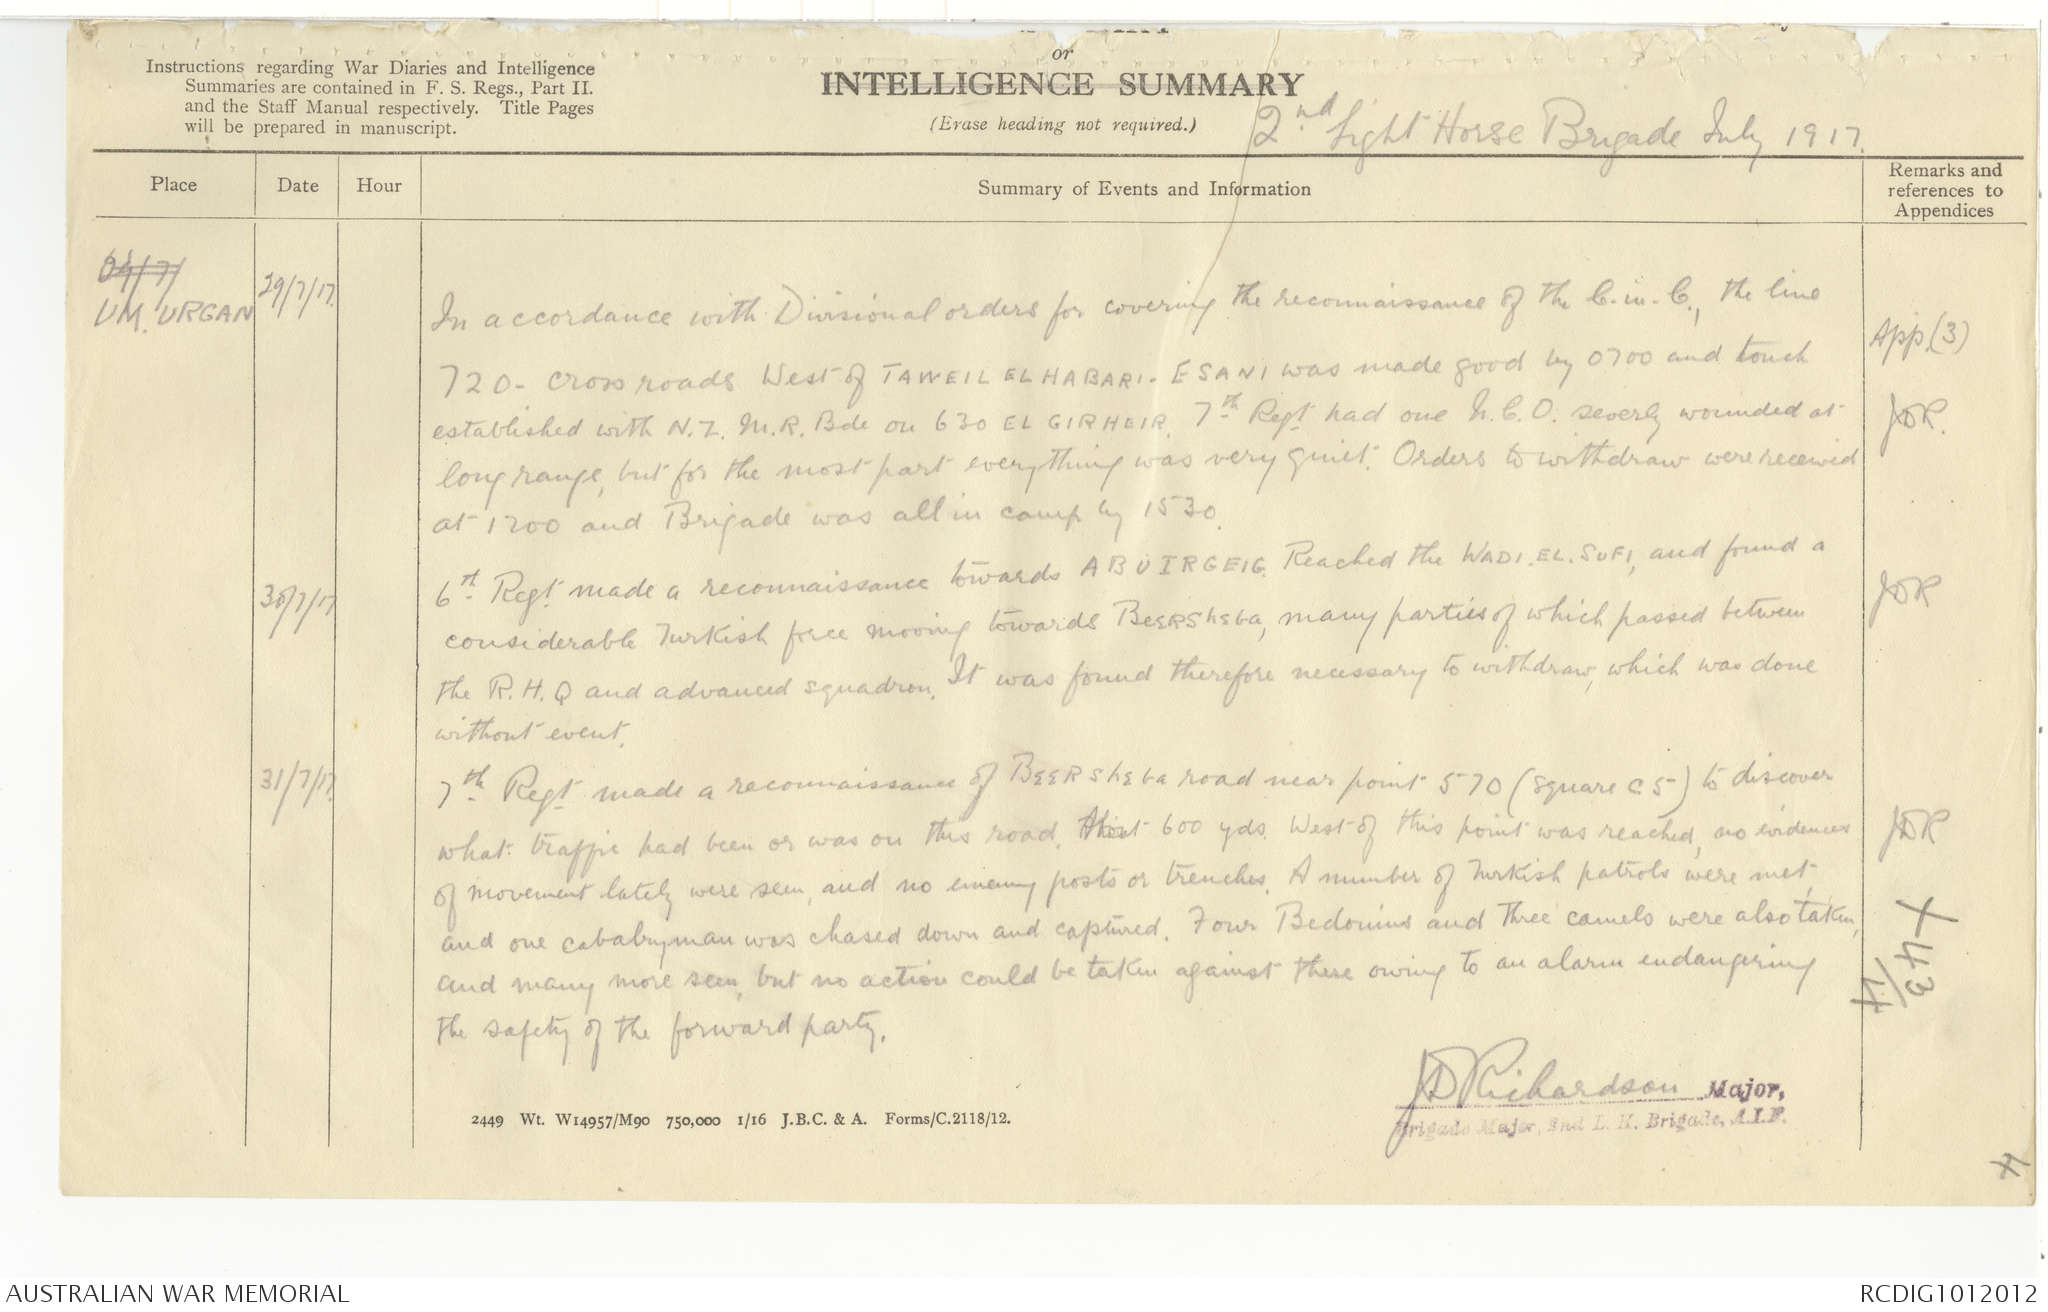 or
INTELLIGENCE SUMMARY
(Erase heading not required.)
Instructions regarding War Diaries and Intelligence
Summaries are contained in F. S. Regs., Part II.
and the Staff Manual respectively. Title Pages
will be prepared in manuscript.
2nd Light Horse Brigade July 1917.
Place
Date
Hour
Summary of Events and Information
Remarks and
references to
Appendices
UM. URGAN
29/7/17.
In accordance with Divisional orders for covering the reconnaissance of the C.-in-C., the line
720- cross roads West of TAWEIL EL HABARI- ESANI was made good by 0700 and touch
established with N.Z. M.R. Bde on 630 EL GIRHEIR. 7th Regt had one N.C.O. severly wounded at
long range, but for the most part everything was very quiet. Orders to withdraw were received
at 1200 and Brigade was all in camp by 1530.
App.(3)
JDR.
30/7/17
6th Regt. made a reconnaissance towards ABUIRGEIG. Reached the WADI.EL.SUFI, and found a
considerable Turkish force moving towards BEERSheba, many parties of which passed between
the R.H.Q and advanced squadron. It was found therefore necessary to withdraw, which was done
without event.
JDR
31/7/17.
7th Regt made a reconnaissance of BEERSheba road near point 570 (square C5) to discover
what traffic had been or was on this road. 600 yds. West of this point was reached, no evidences
of movement lately were seen, and no enemy posts or trenches. A number of Turkish patrols were met,
and one cabalryman was chased down and captured. Four Bedouins and three camels were also taken,
and many more seen, but no action could be taken against these owing to an alarm endangering
the safety of the forward party.
JDR
JDRichardson Major,
Brigade Major, 2nd L. H. Brigade, A.I.F.
2449 Wt. W14957/M90 750,000 1/16 J.B.C. & A. Forms/C.2118/12.
AUSTRALIAN WAR MEMORIAL
RCDIG1012012